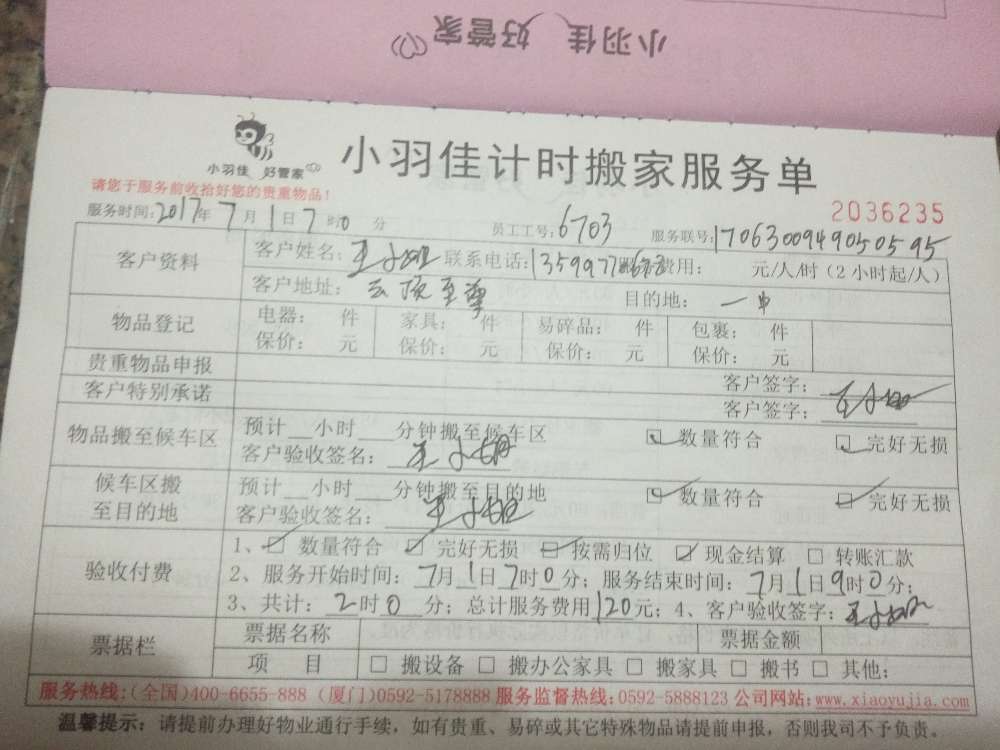 小羽佳 好管家
小羽佳 好管家
小羽佳计时搬家服务单
请您于服务前收拾好您的贵重物品!
2036235
服务时间:2017年7月1日7时0分 员工工号:6703 服务联号:1706300949050595
客户资料
客户姓名: 联系电话: 服务费用: 元/人/时(2小时起/人)
客户地址: 云顶至尊 目的地: 一中
物品登记
电器: 件 家具: 件 易碎品: 件 包裹: 件
保价: 元 保价: 元 保价: 元 保价: 元
贵重物品申报 客户签字:
客户特别承诺 客户签字:
物品搬至候车区
预计__小时___分钟搬至候车区 数量符合 完好无损
客户验收签名:
候车区搬至目的地
预计__小时___分钟搬至目的地 数量符合 完好无损
客户验收签名:
验收付费
1、☑数量符合 ☑完好无损 ☑按需归位 ☑现金结算 □转账汇款
2、服务开始时间:7月1日7时0分;服务结束时间:7月1日9时0分;
3、共计:2时0分;总计服务费用120元;4、客户验收签字:
票据栏
票据名称 票据金额
项 目 □搬设备 □搬办公家具 □搬家具 □搬书 □其他:
服务热线:(全国)400-6655-888 (厦门)0592-5178888 服务监督热线:0592-5888123 公司网站:www.xiaoyujia.com
温馨提示:请提前办理好物业通行手续,如有贵重、易碎或其它特殊物品请提前申报,否则我司不予负责。